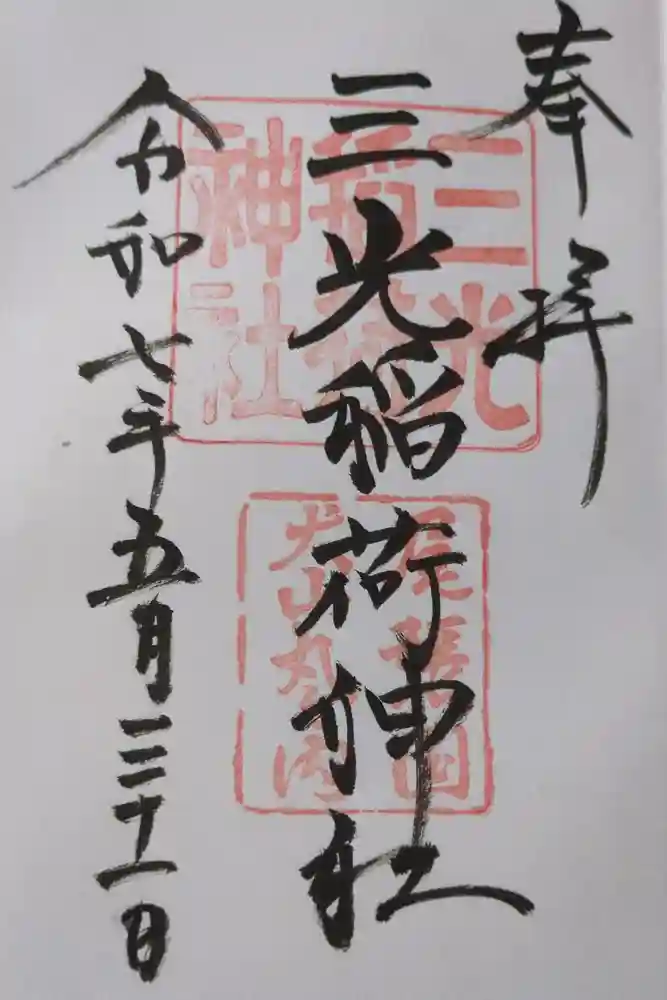 奉拝
三光稲荷神社
令和七年五月三十一日
三光
稲荷
神社
尾張国
犬山丸之内